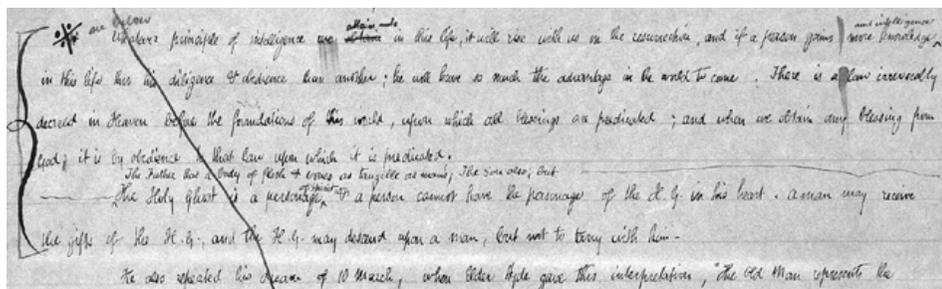 attain unto and intelligence
see below Whatever principle of intelligence we obtain in this life, it will rise with us in the resurrection, and if a person gains more knowledge
in this life thro his diligence & obedience than another; he will have so much the advantage in the world to come. There is a law irrevocably
decreed in Heaven before the foundations of this world, upon which all blessings are predicated; and when we obtain any blessing from
God, it is by obedience to that law upon which it is predicated.
The Father has a body of flesh & bones as tangible as mans; The Son also; but
The Holy Ghost is a personage of Spirit & a person cannot have the personage of the H. G. in his heart. a man may receive
the gifts of the H. G., and the H. G. may descend upon a man, but not to tarry with him-
He also repeated his dream of 10 March, when Elder Hyde gave this interpretation, "The Old Man represents the